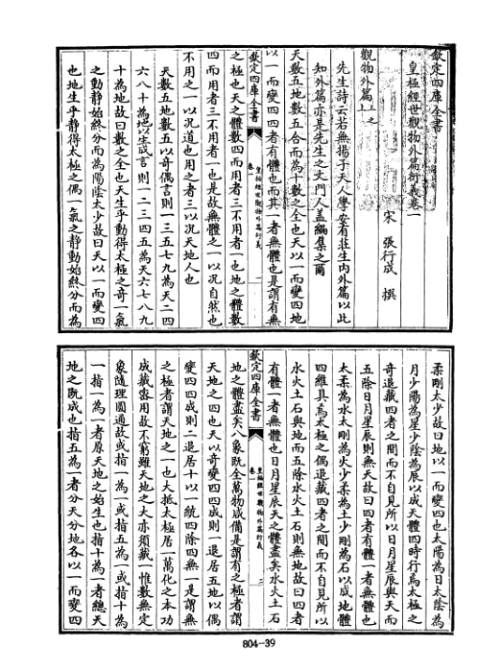 欽定四庫全書
皇極經世觀物外篇衍義卷一
宋 張行成 撰
觀物外篇上之上
先生詩云若無揚子天人學安有莊生內外篇以此
知外篇亦是先生之文門人蓋編集之爾
天數五地數五合而為十數之全也天以一而變四地
以一而變四四者有體也而其一者無體也是謂有無
之極也天之體數四而用者三不用者一也地之體數
四而用者三不用者一也是故無體之一以况自然也
不用之一以况道也用之者三以况天地人也
天數五地數五以奇偶言則一三五七九為天二四
六八十為地以生成言則一二三四五為天六七八九
十為地故曰數之全也天生乎動得太極之奇一氣
之動靜始終分而為陽陰太少故曰天以一而變四
也地生乎靜得太極之偶一氣之靜動始終分而為
欽定四庫全書
卷一
皇極經世觀物外篇衍義
一
柔剛太少故曰地以一而變四也太陽為日太陰為
月少陽為星少陰為辰以成天體四時行焉太極之
奇退藏四者之間而不自見所以日月星辰與天而
五除日月星辰則無天故曰四者有體一者無體也
太柔為水太剛為火少柔為土少剛為石以成地體
四維具焉太極之偶退藏四者之間而不自見所以
水火土石與地而五除水火土石則無地故曰四者
有體一者無體也日月星辰天之體盡矣水火土石
地之體盡矣八象既全萬物成備是謂有之極者謂
天地之四也天以奇變四四成則一退居五地以偶
變四四成則二退居十以一統四除四無一是謂無
之極者謂天地之一也大抵太極居一萬化之本功
成藏密用故不窮雖天地之大亦須藏一惟數無定
象隨理圓通故或指一為一或指五為一或指十為
一指一為一者原天地之始生也指十為一者總天
地之既成也指五為一者分天分地各以一而變四
欽定四庫全書
卷一
皇極經世觀物外篇衍義
二
804-39